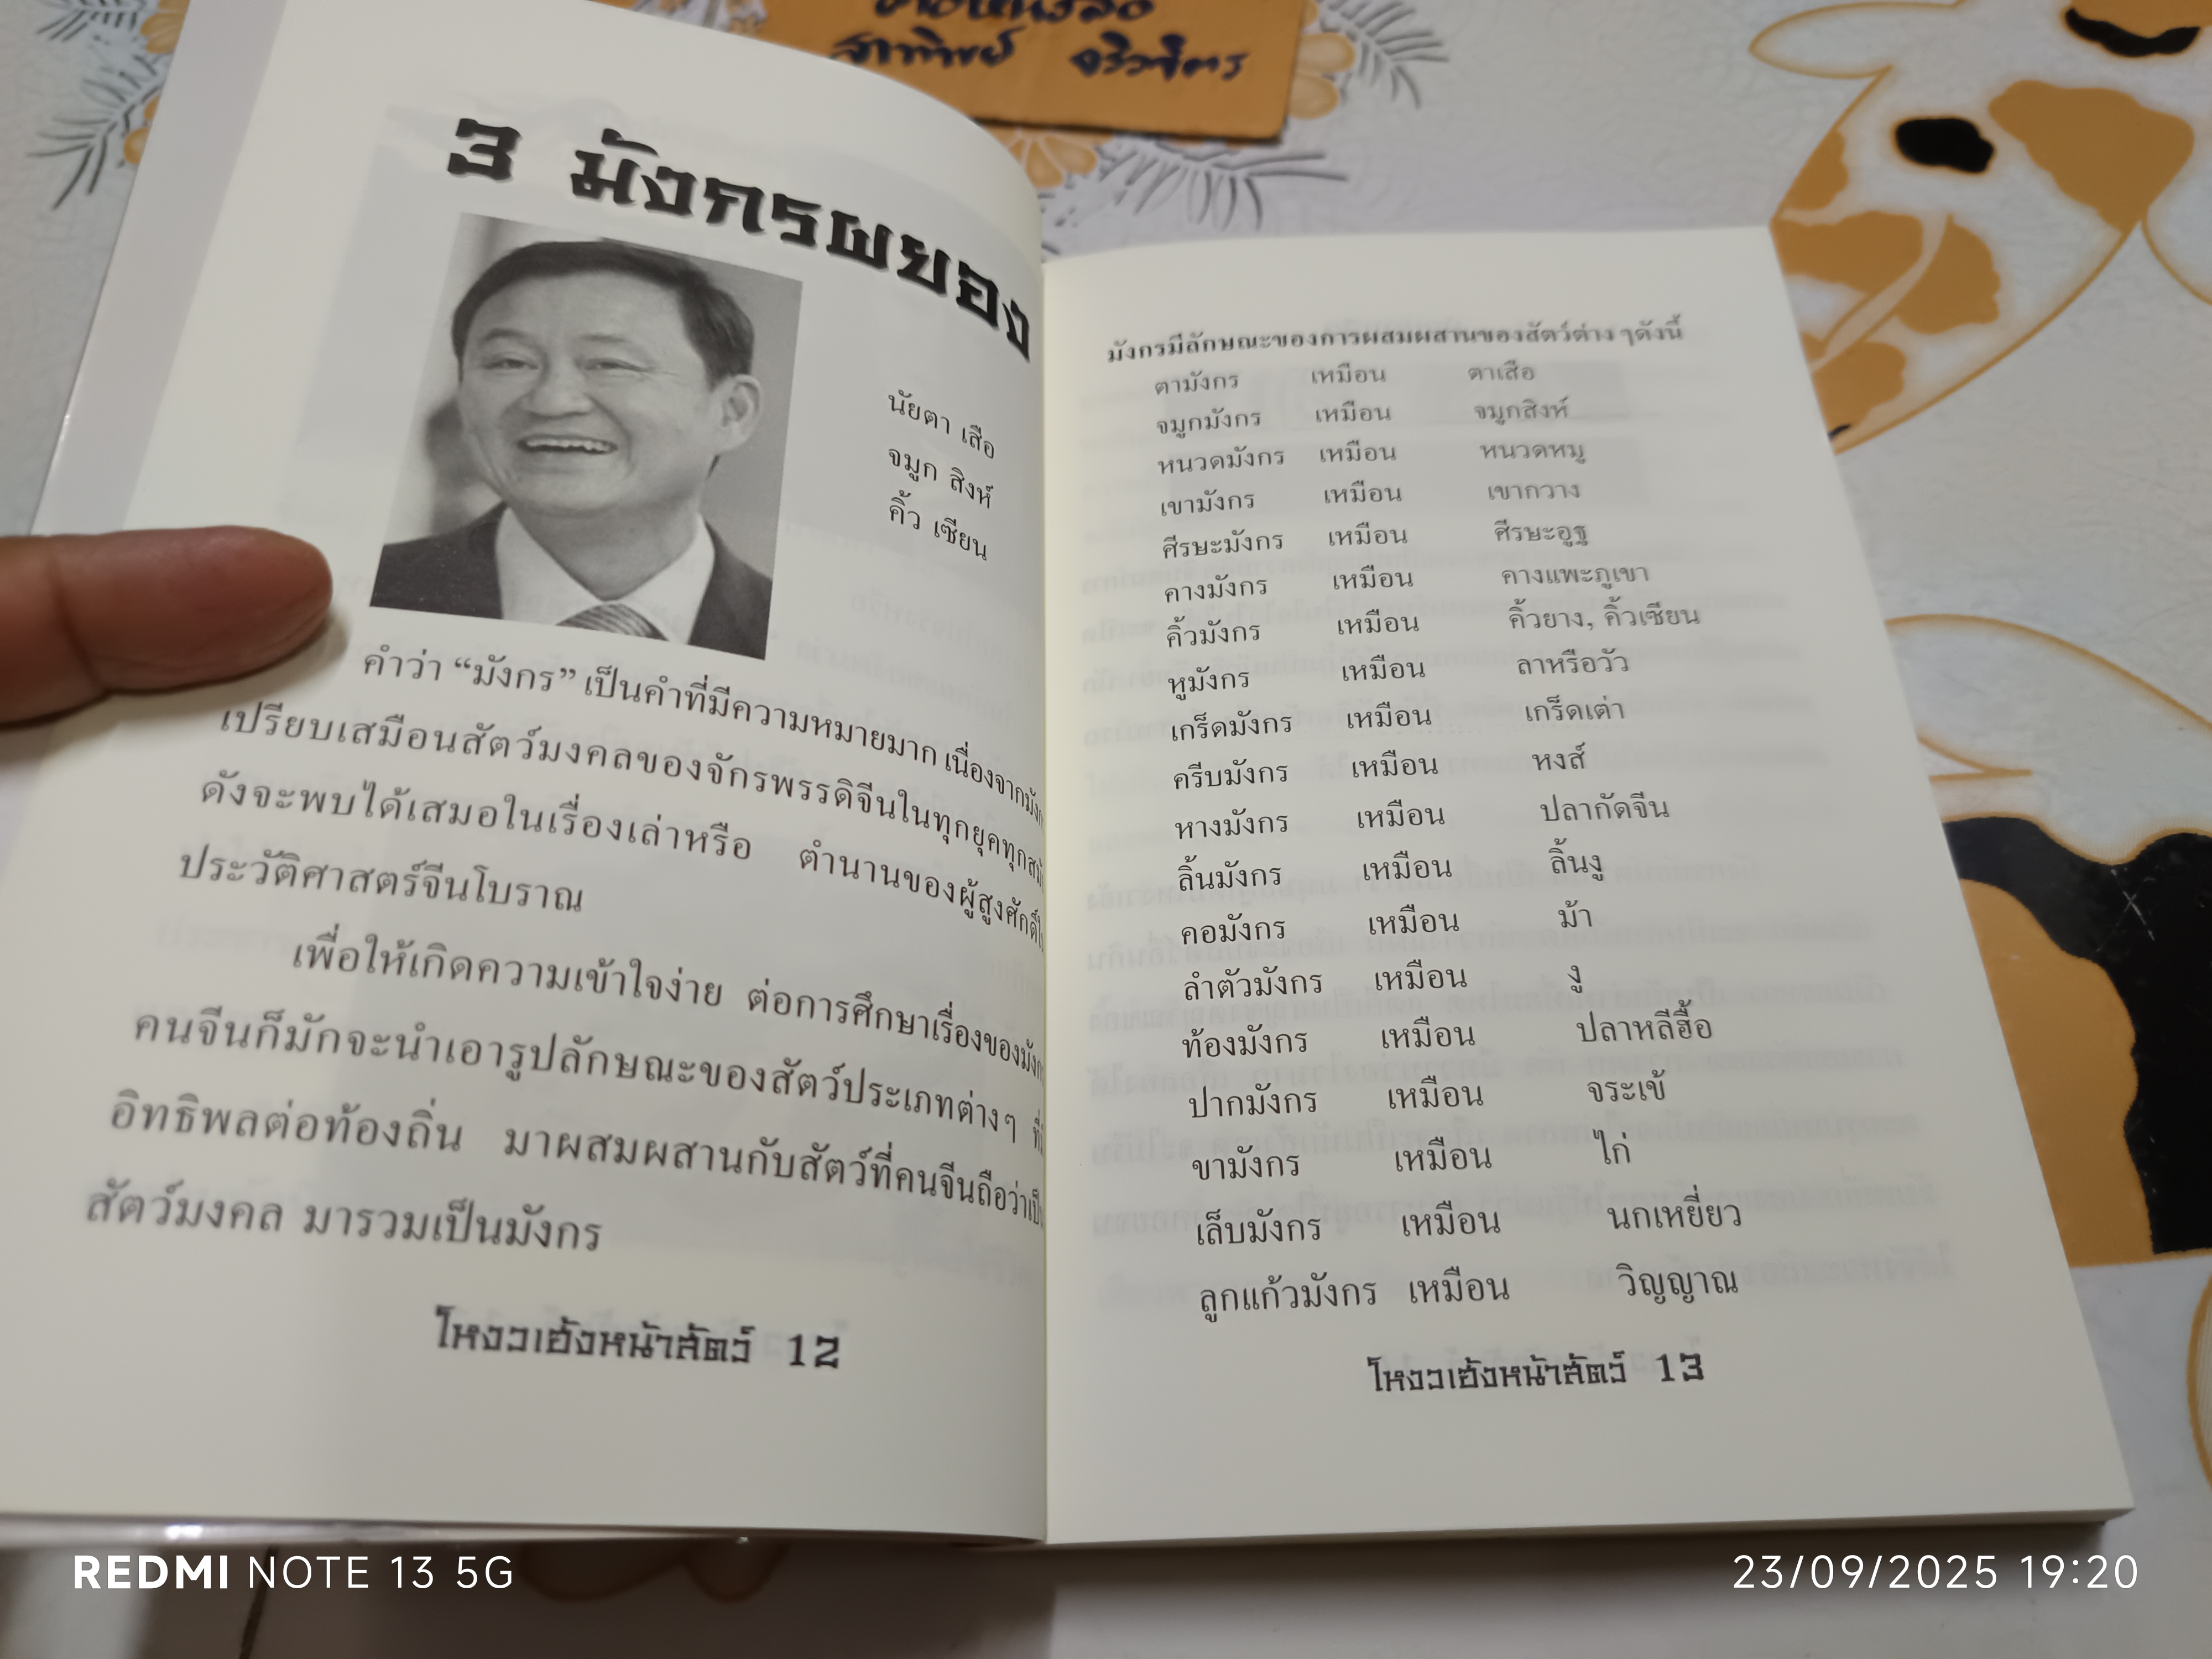 สาทิชย์ จริวจิตร
3 มังกรผยอง
นัยตา เสือ
จมูก สิงห์
คิ้ว เซียน
คำว่า “มังกร” เป็นคำที่มีความหมายมาก เนื่องจาก
เปรียบเสมือนสัตว์มงคลของจักรพรรดิจีนในทุกยุคทุก
ดังจะพบได้เสมอในเรื่องเล่าหรือ ตำนานของผู้สูงศักดิ์
ประวัติศาสตร์จีนโบราณ
เพื่อให้เกิดความเข้าใจง่าย ต่อการศึกษาเรื่องของ
คนจีนก็มักจะนำเอารูปลักษณะของสัตว์ประเภทต่างๆ
อิทธิพลต่อท้องถิ่น มาผสมผสานกับสัตว์ที่คนจีนถือว่า
สัตว์มงคล มารวมเป็นมังกร
โหงวเฮ้งหน้าสัตว์ 12
มังกรมีลักษณะของการผสมผสานของสัตว์ต่าง ๆดังนี้
ตามังกร เหมือน ตาเสือ
จมูกมังกร เหมือน จมูกสิงห์
หนวดมังกร เหมือน หนวดหมู
เขามังกร เหมือน เขากวาง
ศีรษะมังกร เหมือน ศีรษะอูฐ
คางมังกร เหมือน คางแพะภูเขา
คิ้วมังกร เหมือน คิ้วยาง, คิ้วเซียน
หูมังกร เหมือน ลาหรือวัว
เกร็ดมังกร เหมือน เกร็ดเต่า
ครีบมังกร เหมือน หงส์
หางมังกร เหมือน ปลากัดจีน
ลิ้นมังกร เหมือน ลิ้นงู
คอมังกร เหมือน ม้า
ลำตัวมังกร เหมือน งู
ท้องมังกร เหมือน ปลาหลีฮื้อ
ปากมังกร เหมือน จระเข้
ขามังกร เหมือน ไก่
เล็บมังกร เหมือน นกเหยี่ยว
ลูกแก้วมังกร เหมือน วิญญาณ
โหงวเฮ้งหน้าสัตว์ 13
REDMI NOTE 13 5G
23/09/2025 19:20